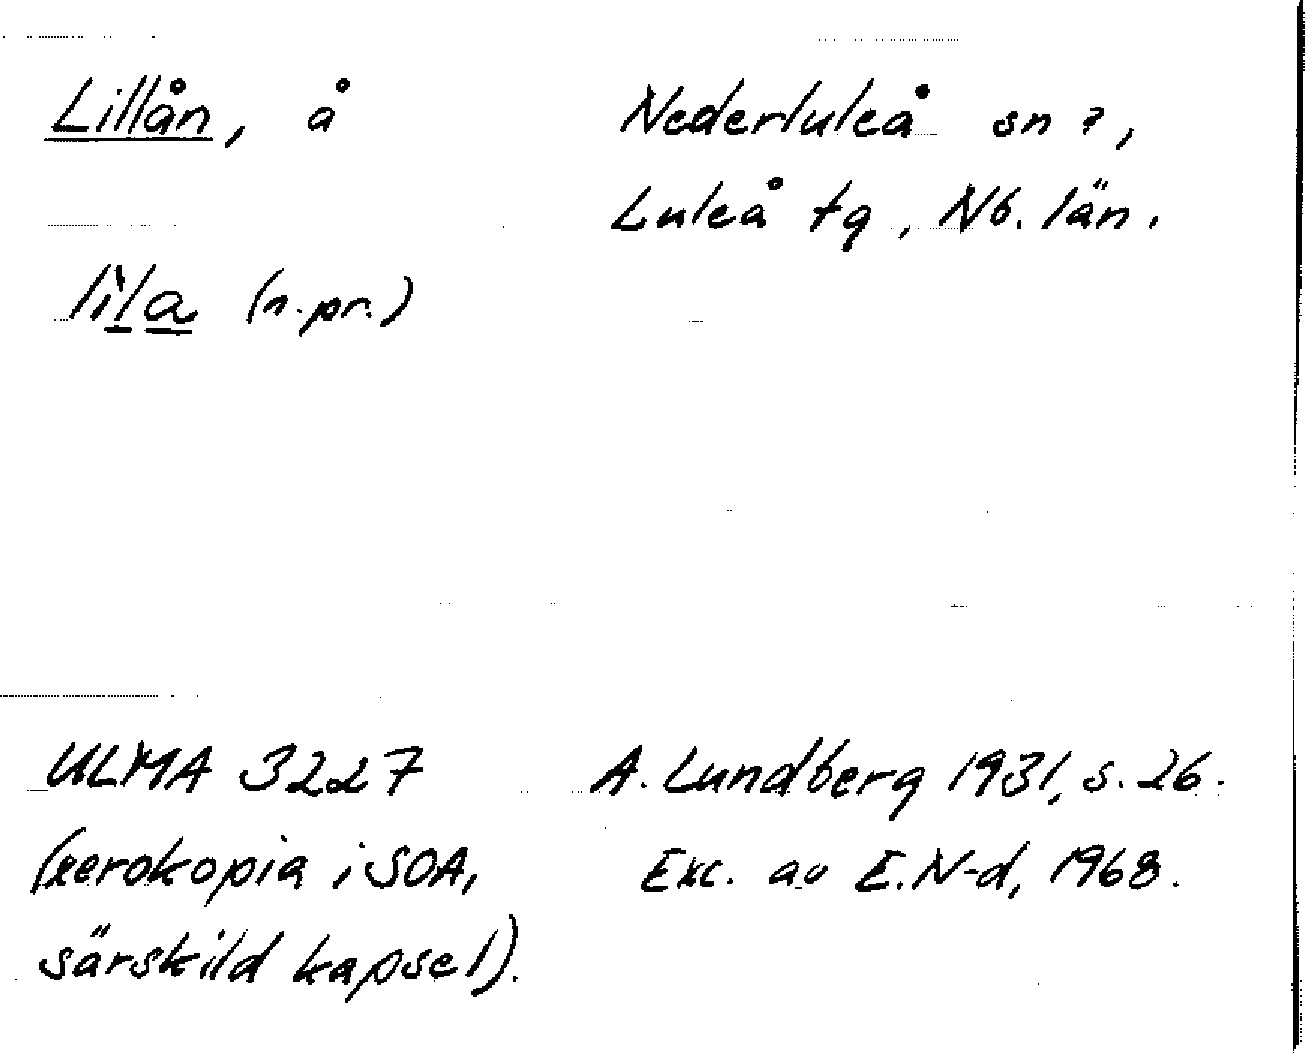 Lillån, å
Nederluleå sn ?,
Luleå tg, Nb. län.
lìla (n.pr.)
ULMA 3227
(xerokopia i SOA,
särskild kapsel).
A. Lundberg 1931, s. 26.
Exc. av E.N-d, 1968.